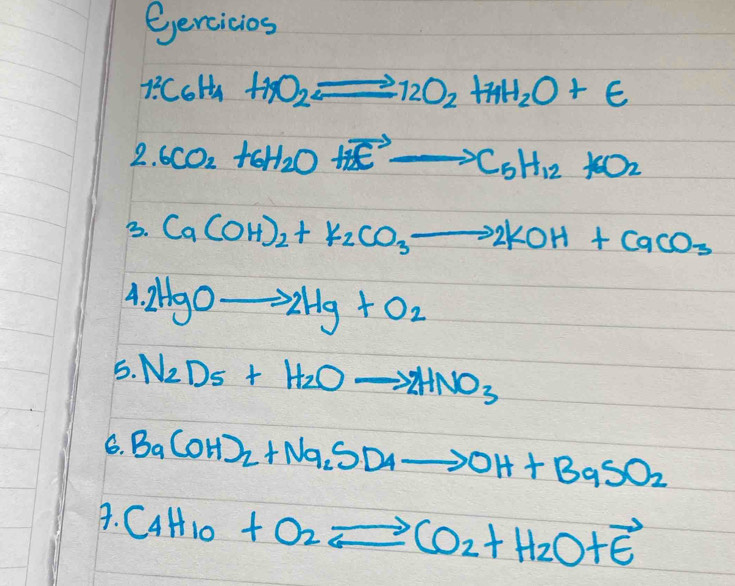 Ejercicios
1. 2C6H4 + 15O2 ⇌ 12O2 + 14H2O + E
2. 6CO2 + 6H2O + E⃗ → C5H12 + 6O2
3. Ca(OH)2 + K2CO3 → 2KOH + CaCO3
4. 2HgO → 2Hg + O2
5. N2D5 + H2O → 2HNO3
6. Ba(OH)2 + Na2SD4 → OH + BaSO2
7. C4H10 + O2 ⇌ CO2 + H2O + E⃗